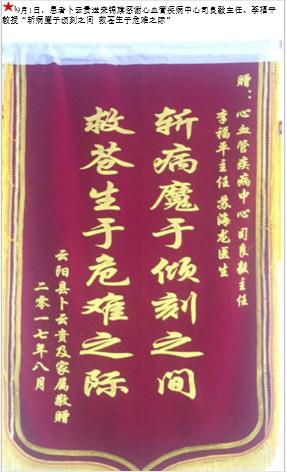 9月1日，患者卜云贵送来锦旗感谢心血管疾病中心司良毅主任、李福平
教授“斩病魔于倾刻之间 救苍生于危难之际”
赠：心血管疾病中心司良毅主任
李福平主任 苏海龙医生
斩病魔于倾刻之间
救苍生于危难之际
云阳县卜云贵及家属敬赠
二零一七年八月